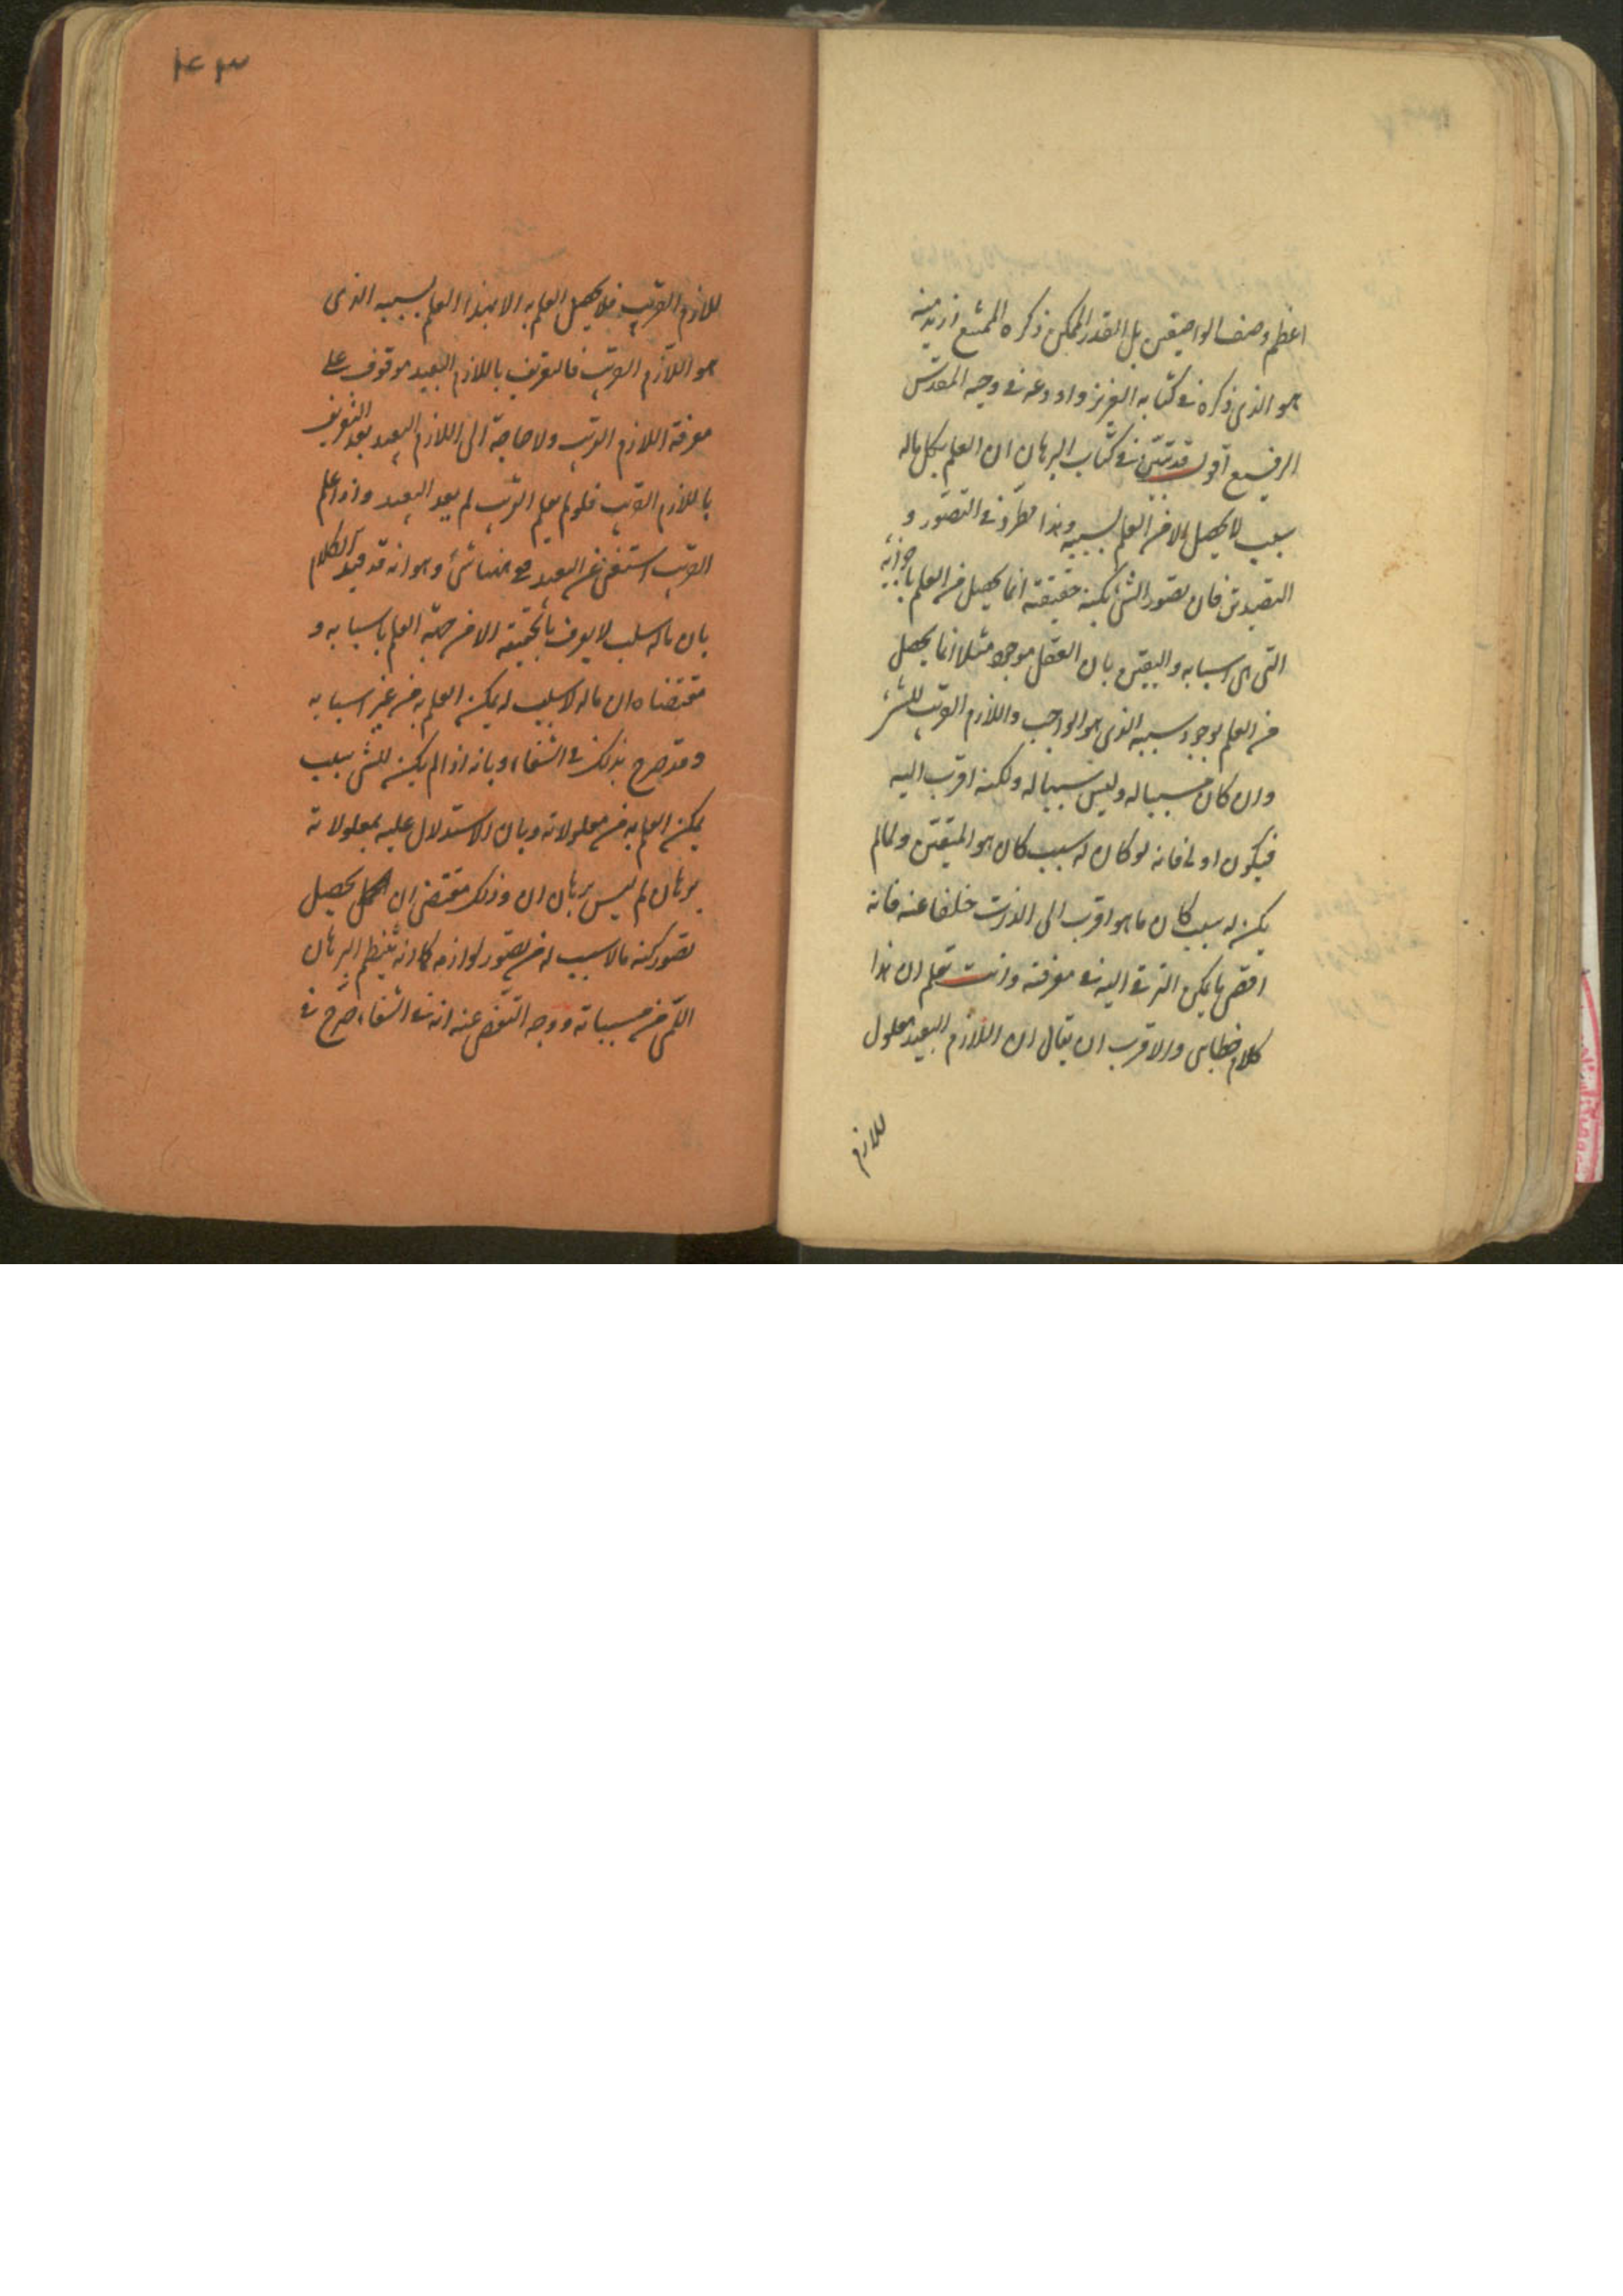 اعظم وصف الواصفين بل القدر الممكن ذكره الممتنع ازيد منه
هو الذى ذكره فى كتابه العزيز واودعه فى وحيه المقدس
الرفيع اقول قد تبين فى كتاب البرهان ان العلم بكل ماله
سبب لا يحصل الا من العلم بسببه وهذا مطرد فى التصور و
التصديق فان تصور الشئ بكنه حقيقته انما يحصل من العلم باجزائه
التى هى اسبابه واليقين بان العقل موجود مثلا انما يحصل
من العلم بوجود سببه الذى هو الواجب واللازم القريب للشئ
وان كان مسببا له وليس سببا له ولكنه اقرب اليه
فيكون اولى فانه لو كان له سبب كان هو المتيقن ولما لم
يكن له سبب كان ما هو اقرب الى الذات خلفا عنه فانه
اقصى ما يمكن الترقى اليه فى معرفته وانت تعلم ان هذا
كلام خطابى والاقرب ان يقال ان اللازم البعيد معلول
للازم
١٤٣
للازم القريب فلا يحصل العلم به الا بهذا العلم بسببه الذى
هو اللازم القريب فالتعريف باللازم البعيد موقوف على
معرفة اللازم القريب ولا حاجة الى اللازم البعيد بعد التعريف
باللازم القريب فلو لم يعلم القريب لم يفد البعيد واذا علم
القريب استغنى عن البعيد مع ههنا شئ وهو انه قد قيد الكلام
بان ماله سبب لا يعرف بالحقيقة الا من جهة العلم باسبابه و
مقتضاه ان ماله لا سبب له يمكن العلم به من غير اسبابه
وقد صرح بذلك فى الشفاء وبانه اذا لم يكن للشئ سبب
يمكن العلم به من معلولاته وبان الاستدلال عليه بمعلولاته
برهان لم ليس برهان ان وذلك مقتضى ان يحصل
تصور كنه مالا سبب له من تصور لوازمه كما انه ينتظم البرهان
اللمى من مسبباته ووجه التفصى عنه انه فى الشفاء صرح فى